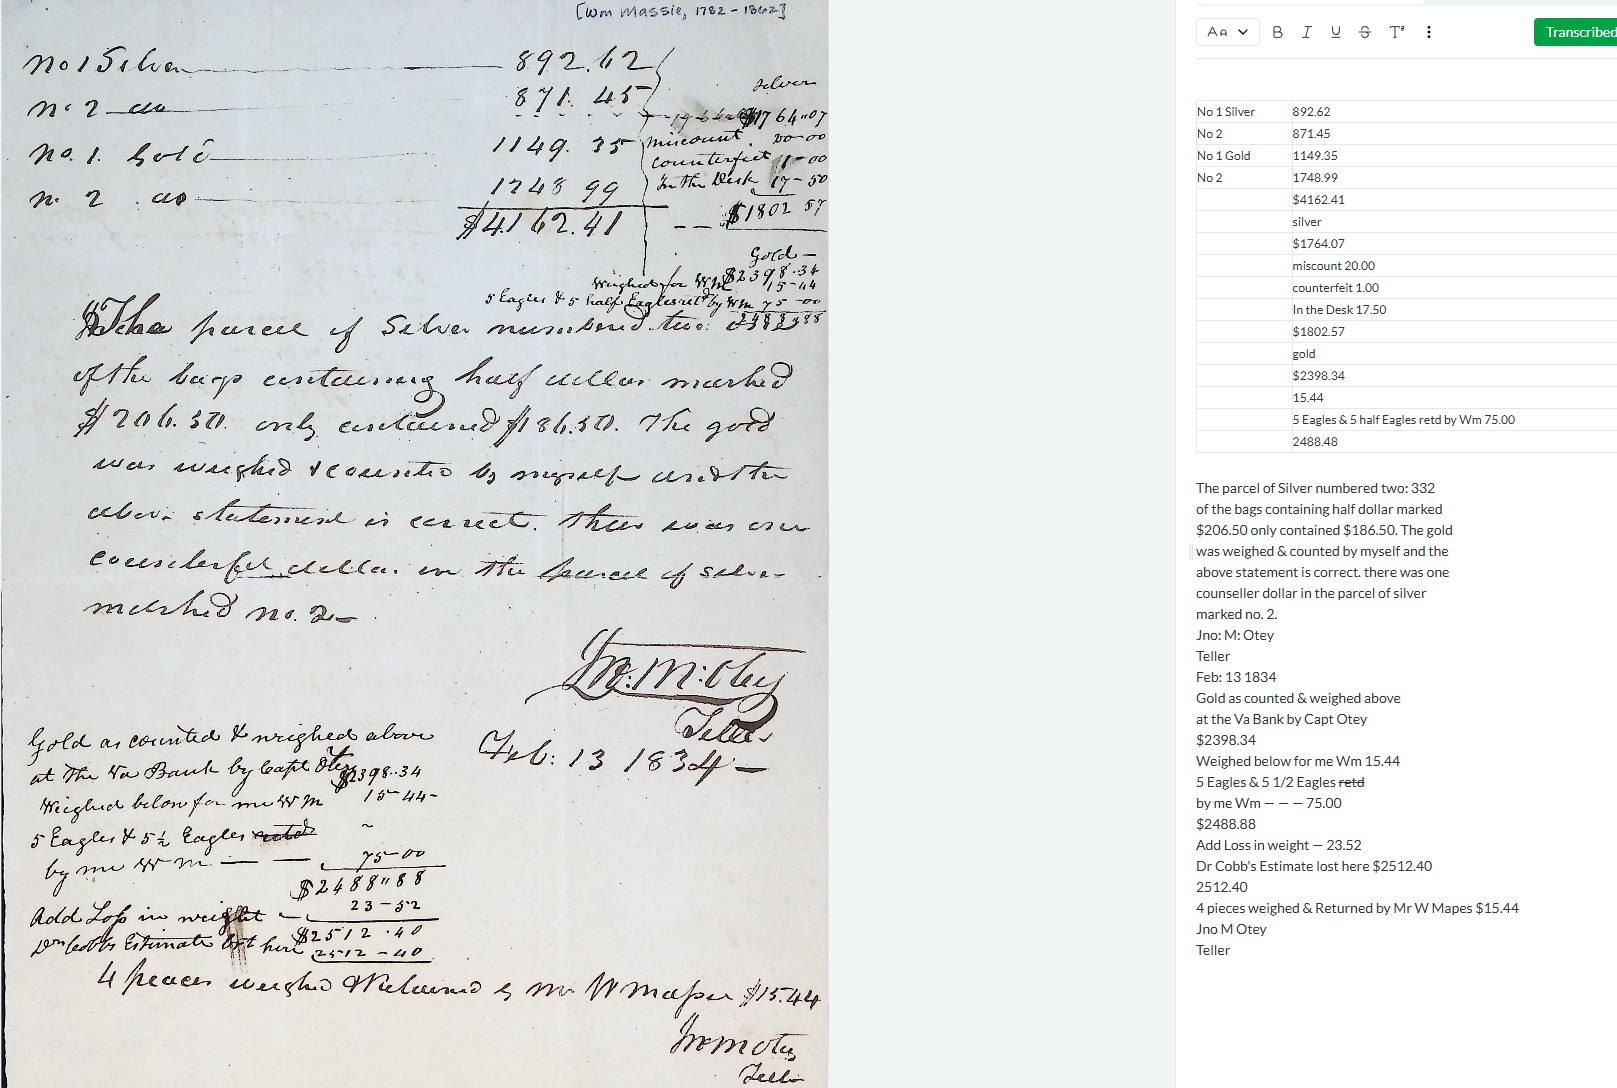 [Wm Massie, 1782-1862]
No 1 Silver 892.62
No 2 do 871.45
No. 1. Gold 1149.35
No 2 do 1248 99
$4162.41
silver
$1764"07
miscount 20-00
Counterfeit 1-00
In the Desk 17-50
$1802 57
Gold -
$2398.34
Weighed for WM 15-44
5 Eagles & 5 half Eagles retd by Wm 75-00
2488 88
The parcel of Silver numbered two:
of the bags containing half dollar marked
$206.50. only contained $186.50. The gold
was weighed & counted by myself and the
above statement is correct. there was one
counterfeit dollar in the parcel of silver
marked no. 2-
Jno: M: Otey
Teller
Feb: 13 1834 -
Gold as counted & weighed above
at the Va Bank by Capt Otey $2398.34
Weighed below for me WM 15-44-
5 Eagles & 5 ½ Eagles retd
by me WM — — 75-00
$2488"88
Add Loss in weight — 23-52
Dr Cobbs Estimate lost here $2512.40
2512-40
4 peaces weighd & Returned by Mr W Massie $15.44
Jno M Otey
Teller
AA B I U S T
Transcribed
No 1 Silver 892.62
No 2 871.45
No 1 Gold 1149.35
No 2 1748.99
$4162.41
silver
$1764.07
miscount 20.00
counterfeit 1.00
In the Desk 17.50
$1802.57
gold
$2398.34
15.44
5 Eagles & 5 half Eagles retd by Wm 75.00
2488.48
The parcel of Silver numbered two: 332
of the bags containing half dollar marked
$206.50 only contained $186.50. The gold
was weighed & counted by myself and the
above statement is correct. there was one
counseller dollar in the parcel of silver
marked no. 2.
Jno: M: Otey
Teller
Feb: 13 1834
Gold as counted & weighed above
at the Va Bank by Capt Otey
$2398.34
Weighed below for me Wm 15.44
5 Eagles & 5 1/2 Eagles retd
by me Wm — — — 75.00
$2488.88
Add Loss in weight — 23.52
Dr Cobb's Estimate lost here $2512.40
2512.40
4 pieces weighed & Returned by Mr W Mapes $15.44
Jno M Otey
Teller